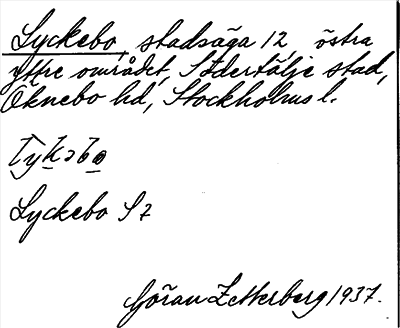 Lyckebo, stadsäga 12, östra
yttre området, Södertälje stad,
Öknebo hd, Stockholms l.
Lykəbo
Lyckebo S 7
Göran Zetterberg 1937.